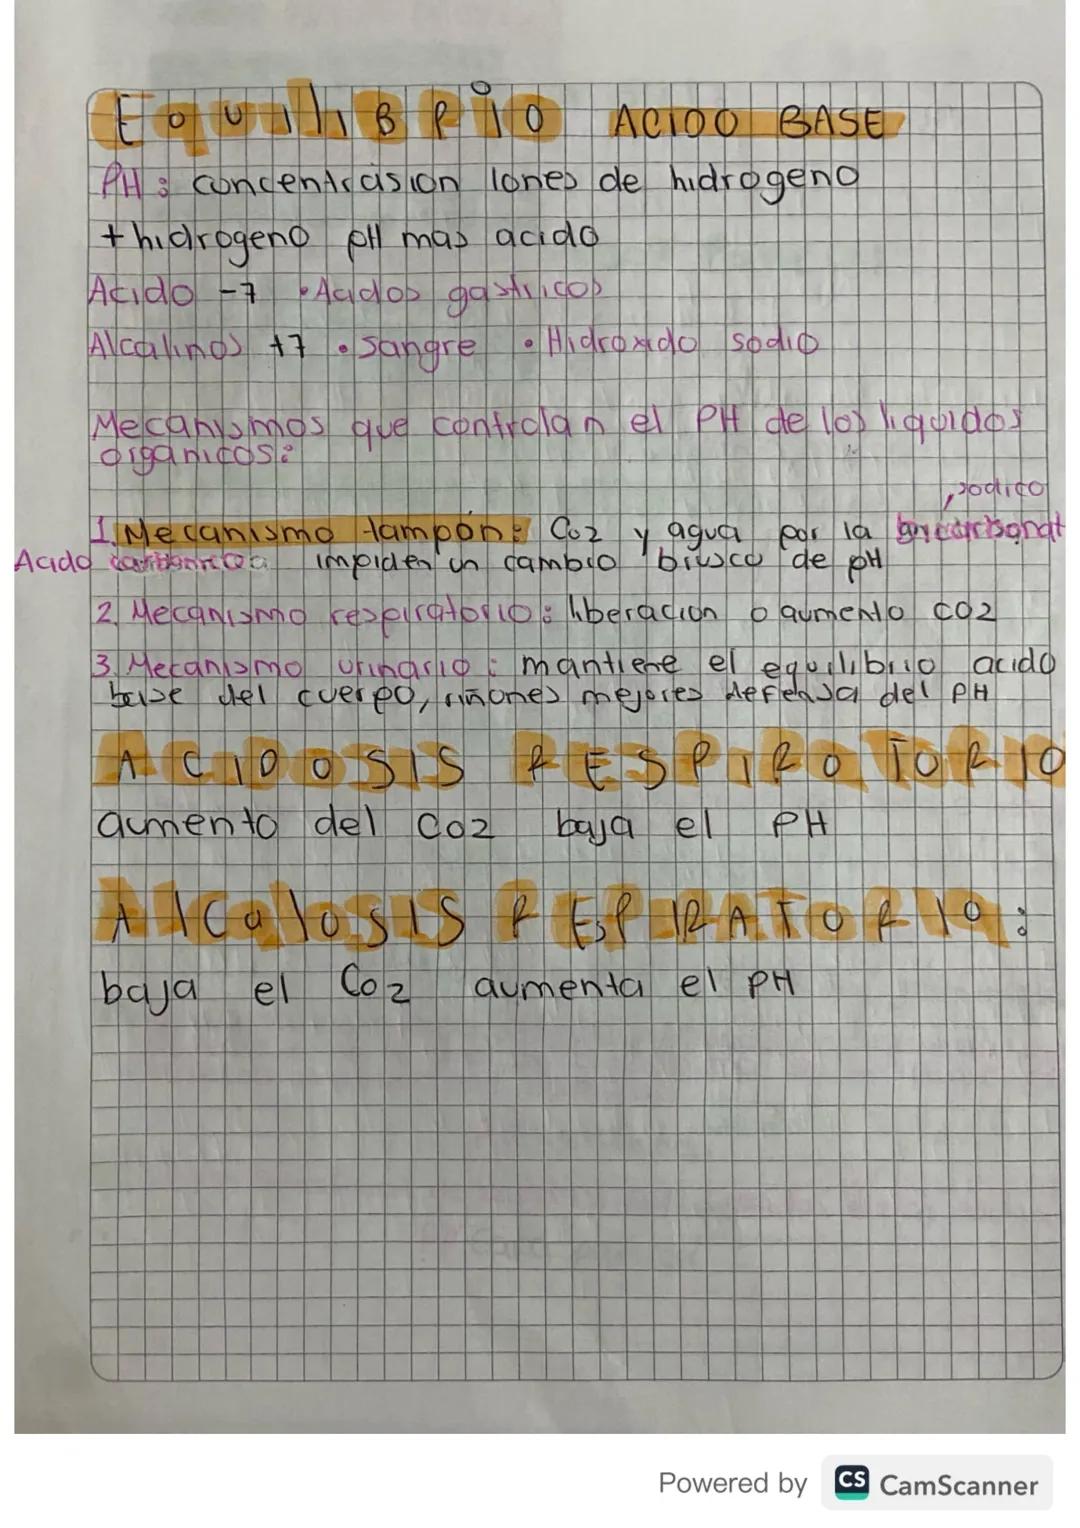 EquiliBRiO ACIDO BASE
PH: concentrasion Iones de hidrogeno
+ hidrogeno pH mas acido
Acido -7 • Acidos gastricos
Alcalinos +7 • Sangre • Hidroxido sodio
Mecanismos que controlan el PH de los liquidos
organicos:
, sodico
1. Mecanismo tampón: Co2 y agua por la bicarbonat
Acido carbonico impiden un cambio brusco de pH
2. Mecanismo respiratorio: liberacion o aumento CO2
3. Mecanismo urinario: mantiene el equilibrio acido
base del cuerpo, riñones mejores defensa del PH
ACIDOSIS RESPIROTORIO
aumento del CO2 baja el PH
AlCalOSIS RESPIRATORIO:
baja el Co2 aumenta el PH
Powered by CS CamScanner